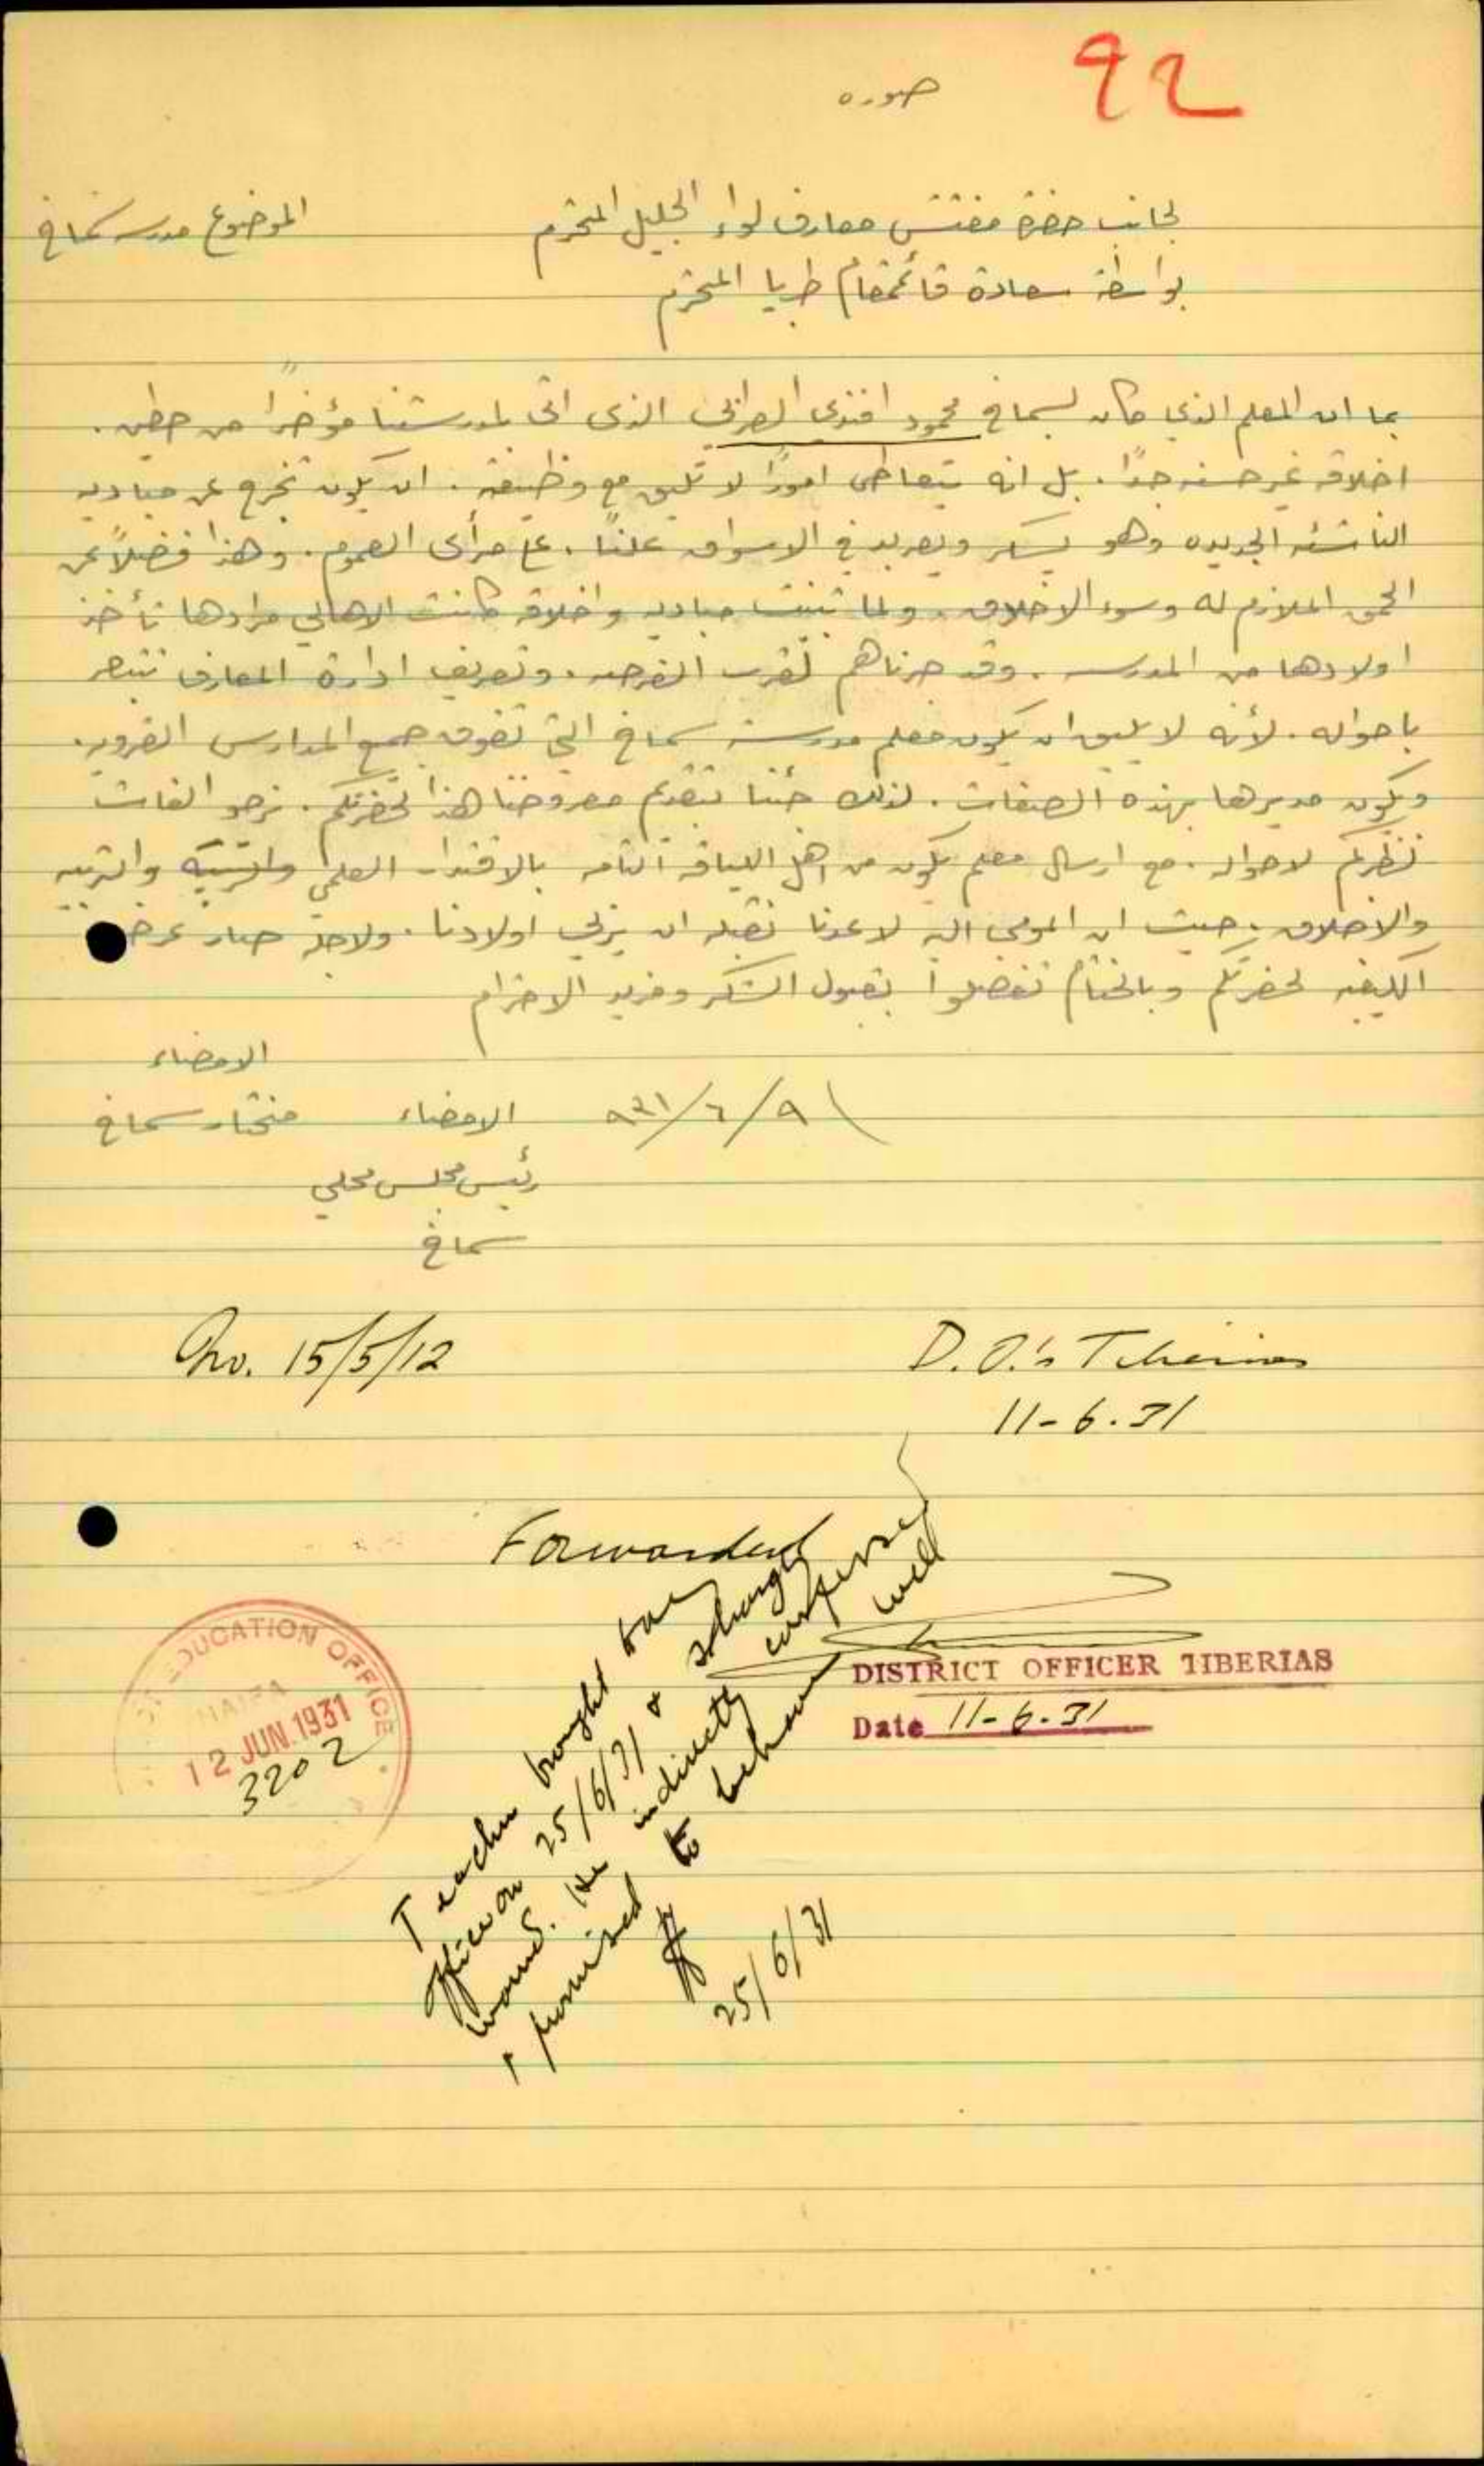 92
صوره
لجانب حضرة مفتش معارف لواء الجليل المحترم
الموضوع مدرسة سماخ
بواسطة سعادة قائمقام طبريا المحترم
بما ان المعلم الذي كان لسماخ محمود افندي الذى اتى لمدرستنا مؤخراً من حطين .
اخلاقه غير حسنه جداً . بل انه يتعاطى اموراً لا تليق مع وظيفته . ان يكون تخرج عن مباديه
الناشئه الجديده وهو يسكر ويعربد في الاسواق علناً . على مرأى العموم . وهذا فضلاً عن
الحمق الملازم له وسوء الاخلاق . ولما تبينت مباديه واخلاقه كانت الاهالي مرادها تأخذ
اولادها من المدرسه . وقد لقرب الفرصه . وتعريف ادارة المعارف تتبصر
باحواله . لأنه لا يليق ان يكون معلم مدرسة سماخ التي تفوق جميع المدارس القرويه .
ويكون مديرها بهذه الصفات . لذلك جئنا بتقديم معروضنا هذا لحضرتكم . نرجو الفات
نظركم لاحواله . مع ارسال معلم يكون من اهل اللياقه التامه بالاقتدار العلمي والتربيه
والاخلاق . حيث ان المومى اليه لا عدنا نقبله ان يربي اولادنا . ولاجله صار عرض
الكيفيه لحضرتكم وبالختام تفضلوا بقبول الشكر ومزيد الاحترام
الامضاء
٩/٦/٩٣١ الامضاء مختار سماخ
رئيس مجلس محلي
سماخ
No. 15/5/12
D.O.'s Tiberias
11-6.31
Forwarded
DISTRICT OFFICER TIBERIAS
Date 11-6-31
EDUCATION OFFICE
HAIFA
12 JUN.1931
3202
Teacher brought to my
office on 25/6/31 & strongly
warned. He indirectly confessed
& promised to behave well
25/6/31